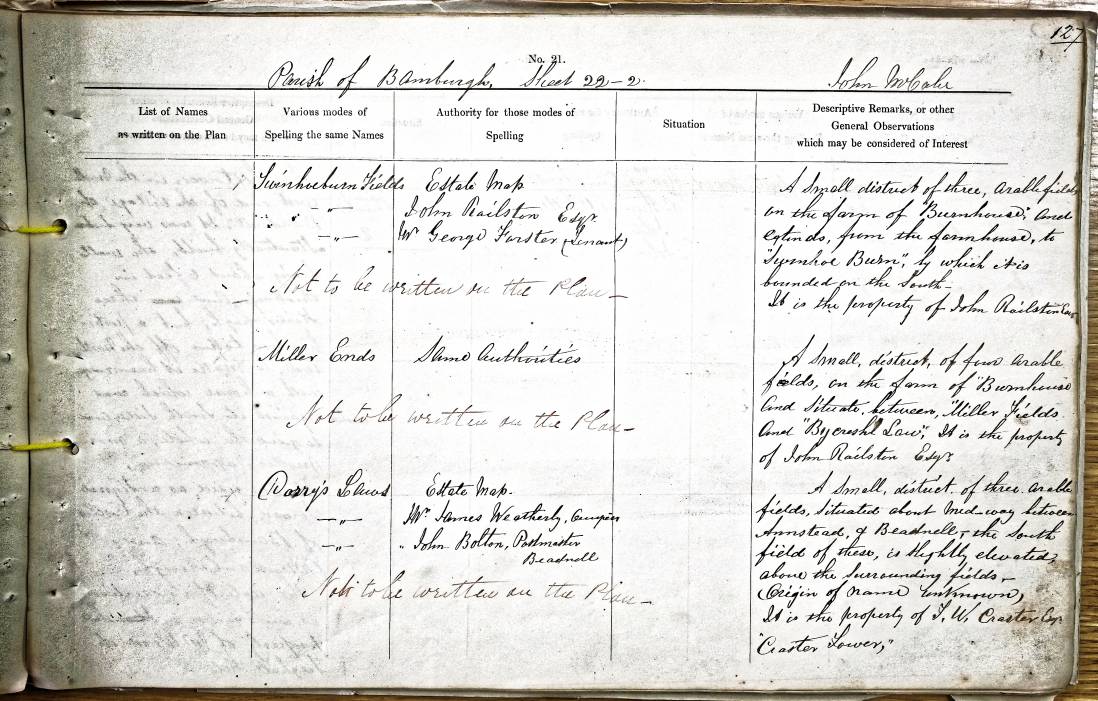 127
No. 21.
Parish of Bamburgh, Sheet 22-2. John McCabe
List of Names
as written on the Plan
Various modes of
Spelling the same Names
Authority for those modes of
Spelling
Situation
Descriptive Remarks, or other
General Observations
which may be considered of Interest
Swinhoeburn Fields
Estate Map
John Railston Esqr.
Mr George Forster (Tenant)
Not to be written on the Plan
A Small district of three, arable fields
on the farm of "Burnhouse" and
extends, from the farmhouse, to
"Swinhoe Burn", by which it is
bounded on the South-
It is the property of John Railston Esqr
Miller Ends
Same Authorities
Not to be written on the Plan
A Small, district, of four arable
fields, on the farm of "Burnhouse
and Situate, between, "Miller Fields
and Law", It is the property
of John Railston Esqr
Dorry's Laws
Estate Map.
Mr James Weatherly, Occupier
" John Bolton, Postmaster
Beadnell
Not to be written on the Plan
A Small, district, of three, arable
fields, Situated about Mid-way between
Annstead, & Beadnell, the South
field of these, is Slightly elevated,
above the Surrounding fields,
(Origin of name unknown,
It is the property of T. W. Craster Esqr
"Craster Tower,"